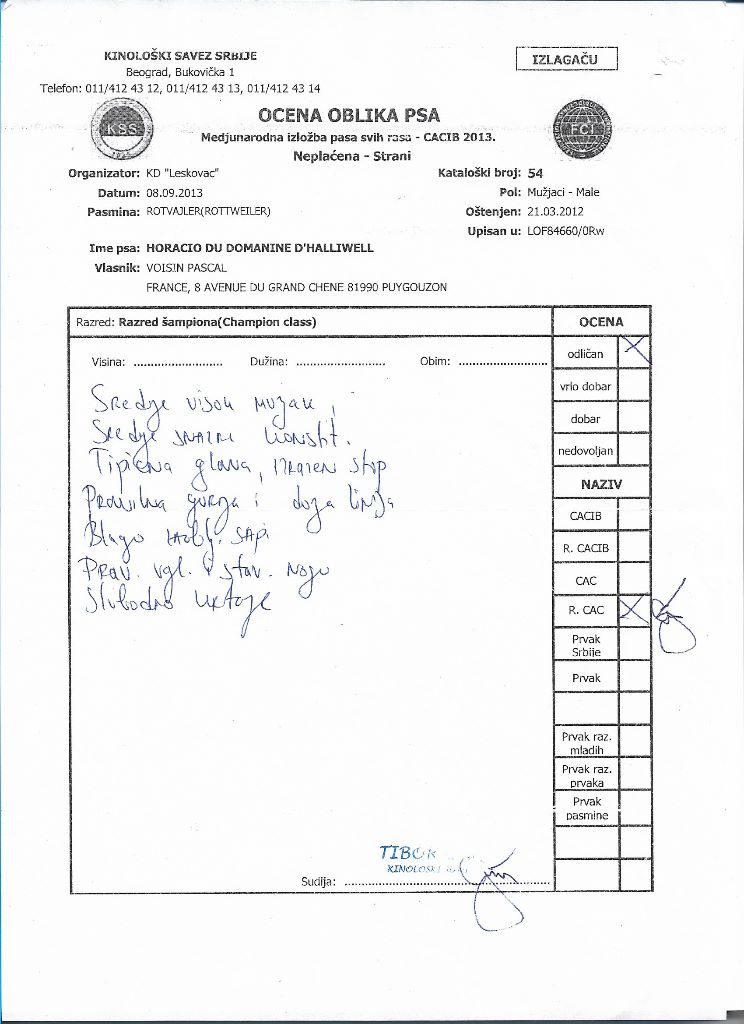 KINOLOŠKI SAVEZ SRBIJE
Beograd, Bukovička 1
Telefon: 011/412 43 12, 011/412 43 13, 011/412 43 14
IZLAGAČU
KSS
FCI
OCENA OBLIKA PSA
Medjunarodna izložba pasa svih rasa - CACIB 2013.
Neplaćena - Strani
Organizator: KD "Leskovac"
Kataloški broj: 54
Datum: 08.09.2013
Pol: Mužjaci - Male
Pasmina: ROTVAJLER(ROTTWEILER)
Oštenjen: 21.03.2012
Upisan u: LOF84660/0Rw
Ime psa: HORACIO DU DOMANINE D'HALLIWELL
Vlasnik: VOISIN PASCAL
FRANCE, 8 AVENUE DU GRAND CHENE 81990 PUYGOUZON
Razred: Razred šampiona(Champion class)
OCENA
Visina: Dužina: Obim:
odličan X
vrlo dobar
dobar
nedovoljan
NAZIV
CACIB
R. CACIB
CAC
R. CAC X
Prvak Srbije
Prvak
Prvak raz. mladih
Prvak raz. prvaka
Prvak pasmine
Sredje visok mužjak,
Sredje snažne konstit.
Tipična glava, izražen stop
Pravilna gornja i donja linija
Blago sapi
Prav. ugl. i stav. nogu
Slobodno kretanje
TIBOR
KINOLOŠKI
Sudija: